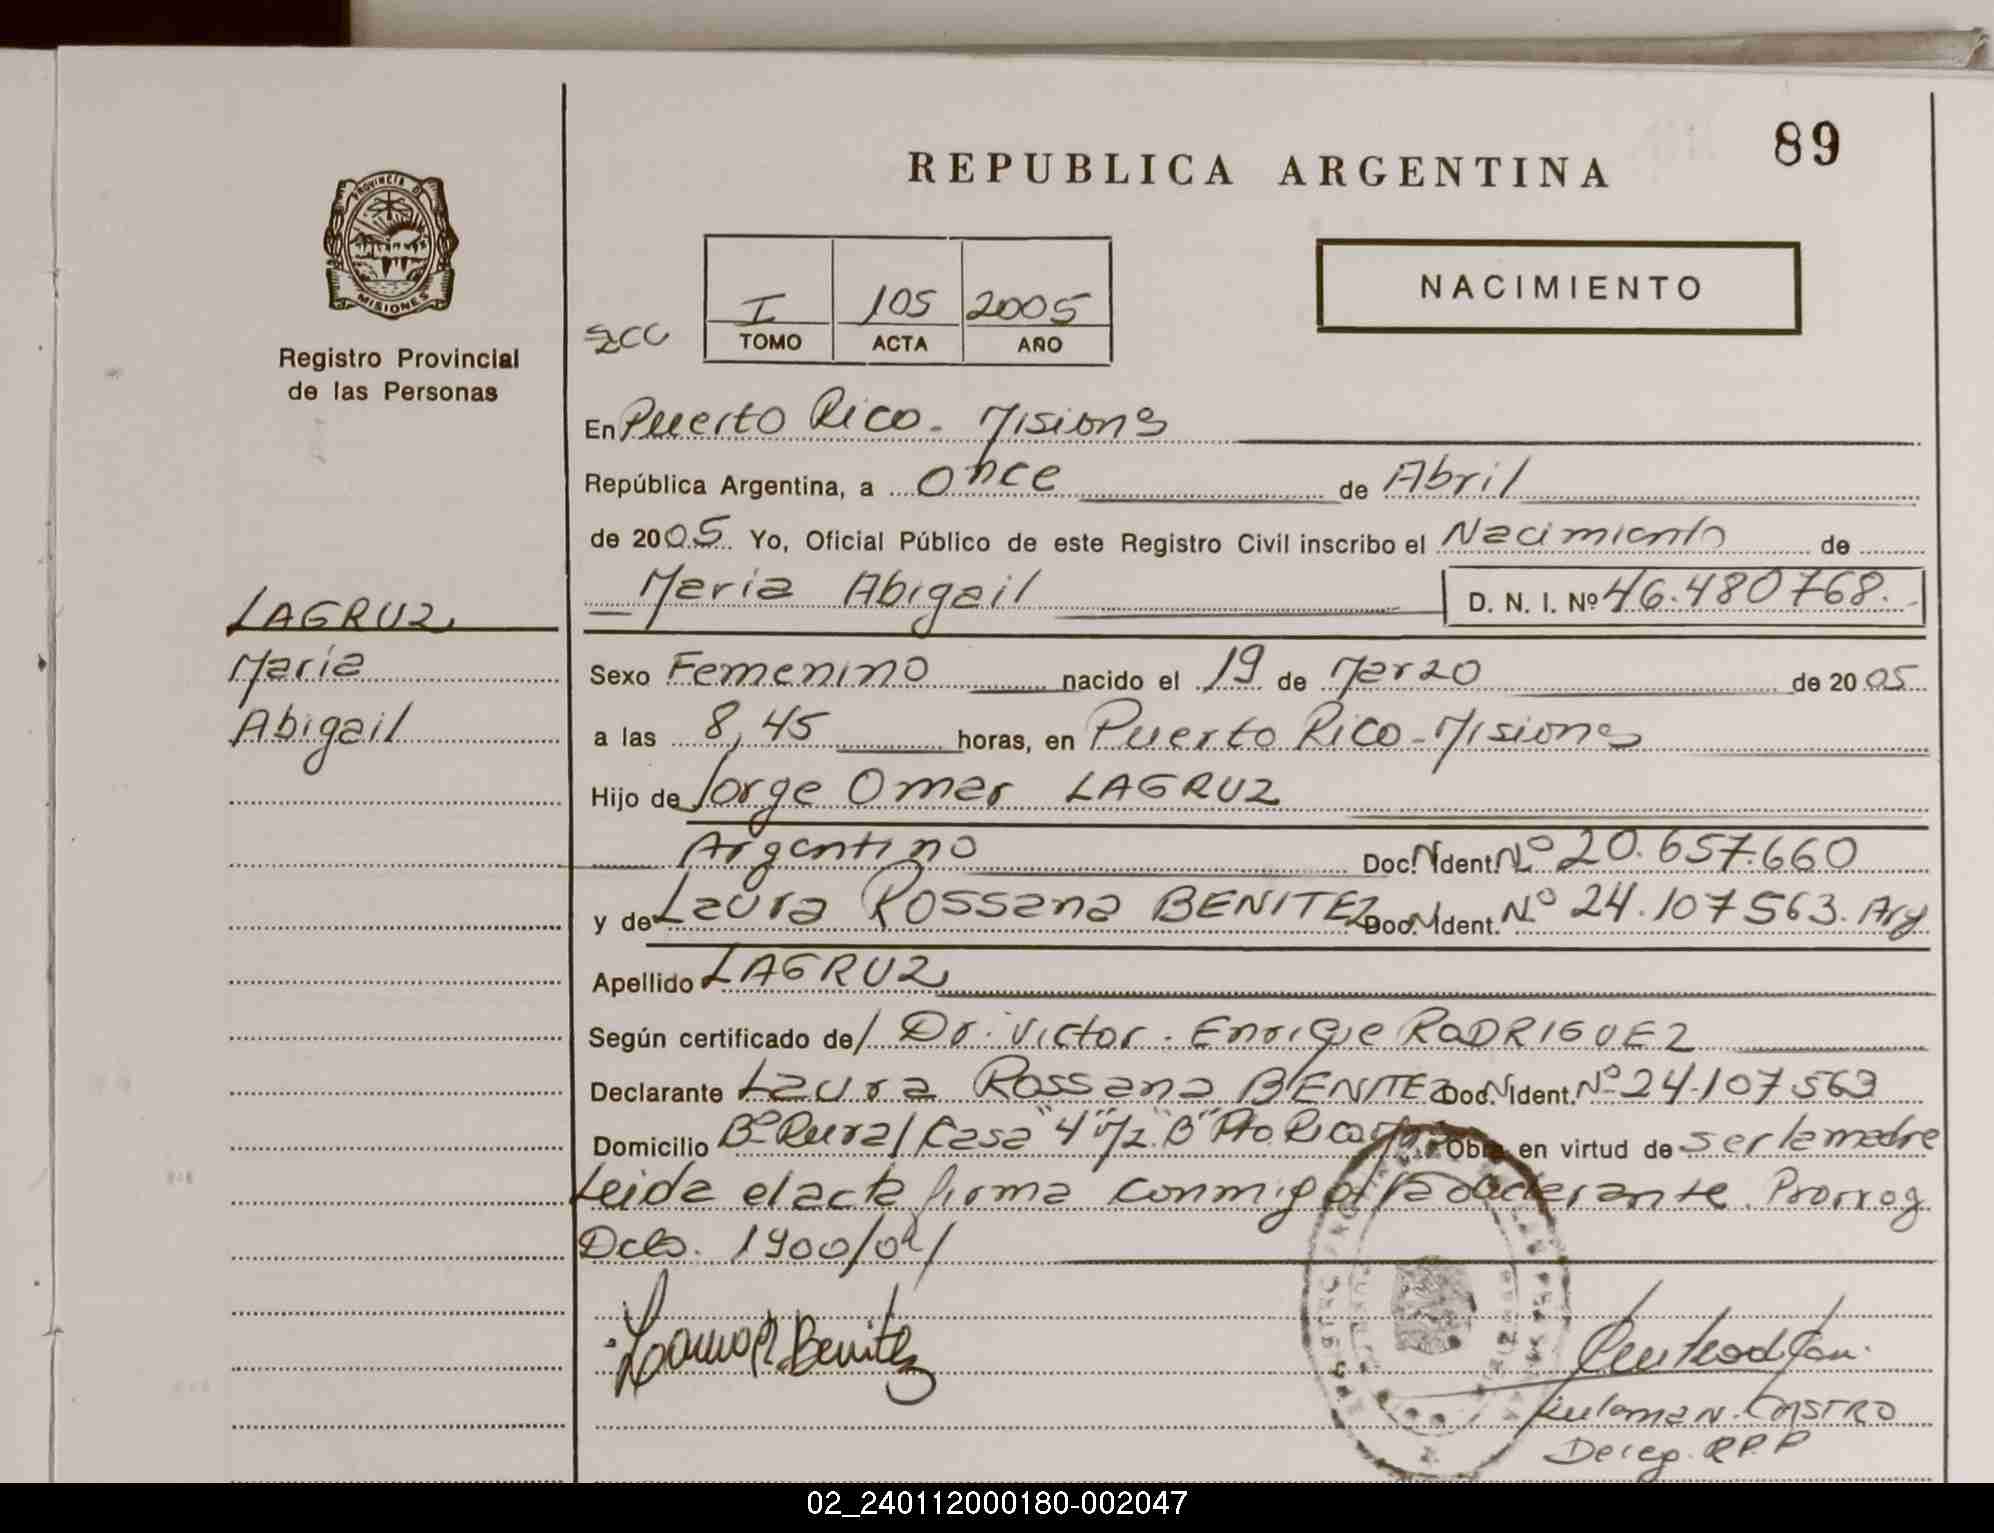 89
REPUBLICA ARGENTINA
PROVINCIA DE
MISIONES
Registro Provincial
de las Personas
I 105 2005
TOMO ACTA AÑO
NACIMIENTO
En Puerto Rico - Misiones
República Argentina, a once de Abril
de 2005 Yo, Oficial Público de este Registro Civil inscribo el Nacimiento de
María Abigail D. N. I. Nº 46.480768.
LAGRUZ,
María
Abigail
Sexo Femenino nacido el 19 de Marzo de 2005
a las 8,45 horas, en Puerto Rico - Misiones
Hijo de Jorge Omar LAGRUZ
Argentino Doc. Ident. Nº 20.657.660
y de Laura Rossana BENITEZ Doc. Ident. Nº 24.107563. Arg
Apellido LAGRUZ,
Según certificado de/ Dr. Victor. Enrique RODRIGUEZ
Declarante Laura Rossana BENITEZ Doc. Ident. Nº 24.107.563
Domicilio Bº Rural Casa "4" Mz. "B" Pto. Rico Obra en virtud de ser la madre
Leida el acta firma conmigo la declarante. Prorrog
Dcto. 1900/04/
Laura R. Benitez
N. CASTRO
Deleg. R.P.P
02_240112000180-002047